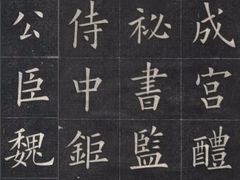 成宮醴
祕書監
侍中鉅
公臣魏